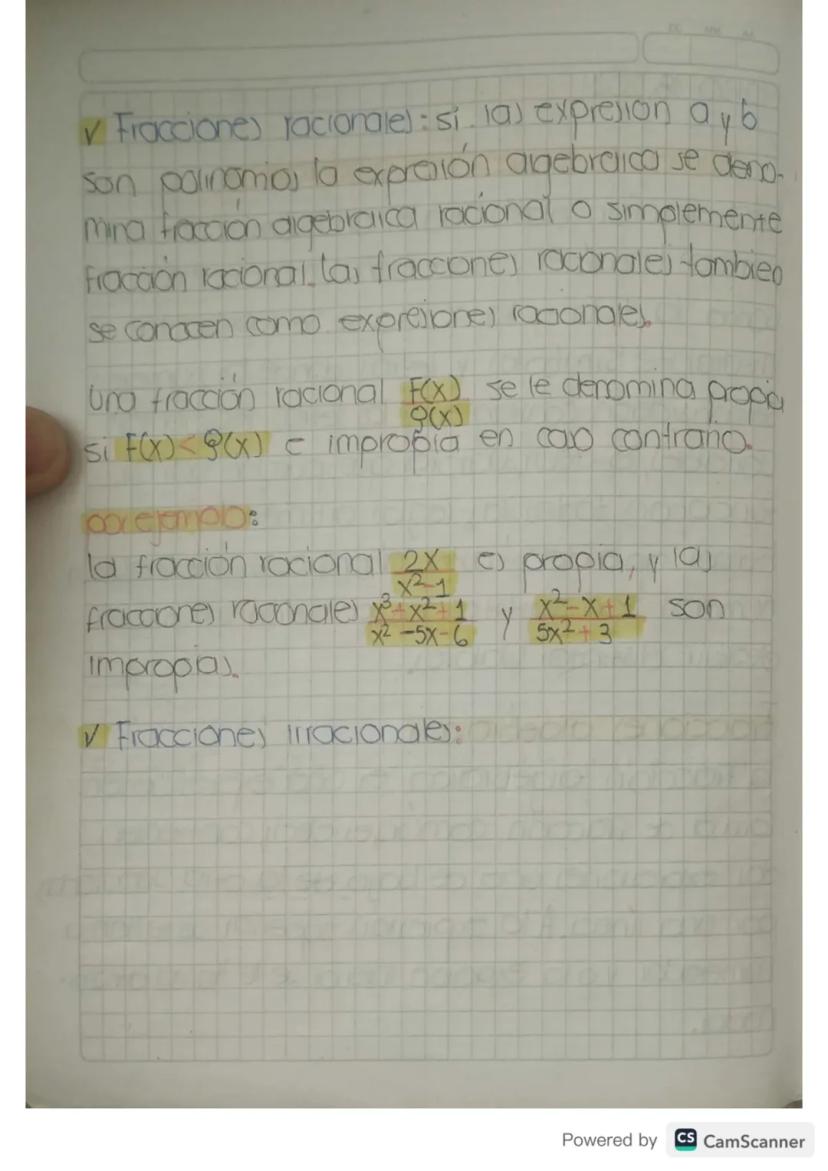 √ Fracciones racionales: si las expresion a y b
son polinomios la expresión algebraica se deno-
mina fracción algebraica racional o simplemente
fracción racional. las fracciones racionales tambien
se conocen como expresiones racionales.
Una fracción racional F(x)/Q(x) se le denomina propia
si F(x) < Q(x) e impropia en caso contrario.
por ejemplo:
la fracción racional 2x/x²-1 es propia, y las
fracciones racionales x³+x²+1/x²-5x-6 y x²-x+1/5x²+3 son
impropias.
√ Fracciones irracionales:
Powered by CS CamScanner